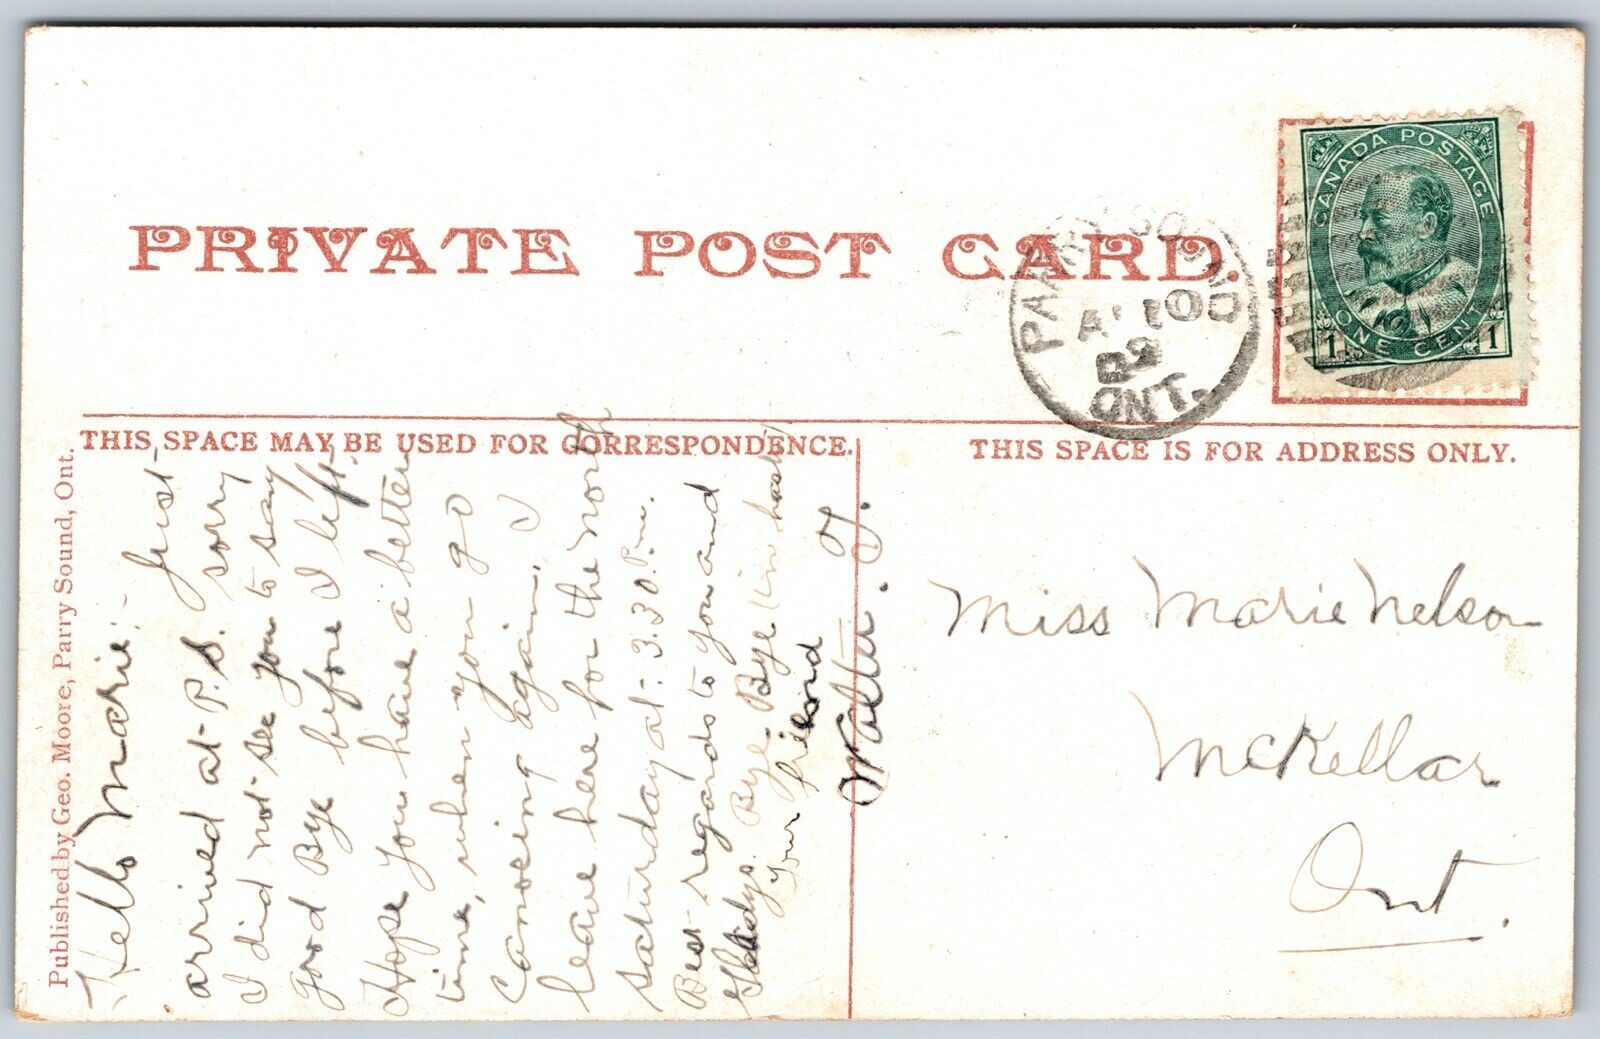 PRIVATE POST CARD.
PARRY SOUND
10
09
ONT.
CANADA POSTAGE
ONE CENT
1 1
THIS SPACE MAY BE USED FOR CORRESPONDENCE.
THIS SPACE IS FOR ADDRESS ONLY.
Published by Geo. Moore, Parry Sound, Ont.
Hello Marie:- Just
arrived at P.S. sorry
I did not see you to say
good Bye before I left.
Hope you have a better
time, when you go
Canoeing again. I
leave here for the north
saturday at 3.30 P.m.
Best regards to you and
Gladys. Bye Bye (in haste)
Your friend
Walter. Y.
Miss Marie Nelson
McKellar
Ont.